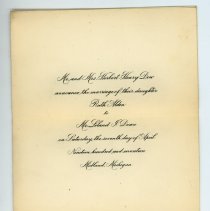 Mr. and Mrs. Herbert Henry Dow
announce the marriage of their daughter
Ruth Alden
to
Mr. Leland I. Doan
on Saturday, the seventh day of April
Nineteen hundred and seventeen
Midland, Michigan